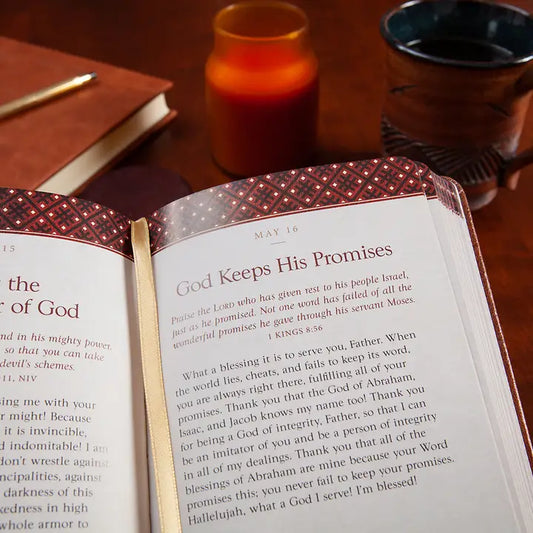 15
the
r of God
nd in his mighty power,
so that you can take
devil's schemes.
11, NIV
sing me with your
r might! Because
it is invincible,
d indomitable! I am
don't wrestle against
incipalities, against
darkness of this
kedness in high
whole armor to
MAY 16
God Keeps His Promises
Praise the LORD who has given rest to his people Israel,
just as he promised. Not one word has failed of all the
wonderful promises he gave through his servant Moses.
1 KINGS 8:56
What a blessing it is to serve you, Father. When
the world lies, cheats, and fails to keep its word,
you are always right there, fulfilling all of your
promises. Thank you that the God of Abraham,
Isaac, and Jacob knows my name too! Thank you
for being a God of integrity, Father, so that I can
be an imitator of you and be a person of integrity
in all of my dealings. Thank you that all of the
blessings of Abraham are mine because your Word
promises this; you never fail to keep your promises.
Hallelujah, what a God I serve! I'm blessed!